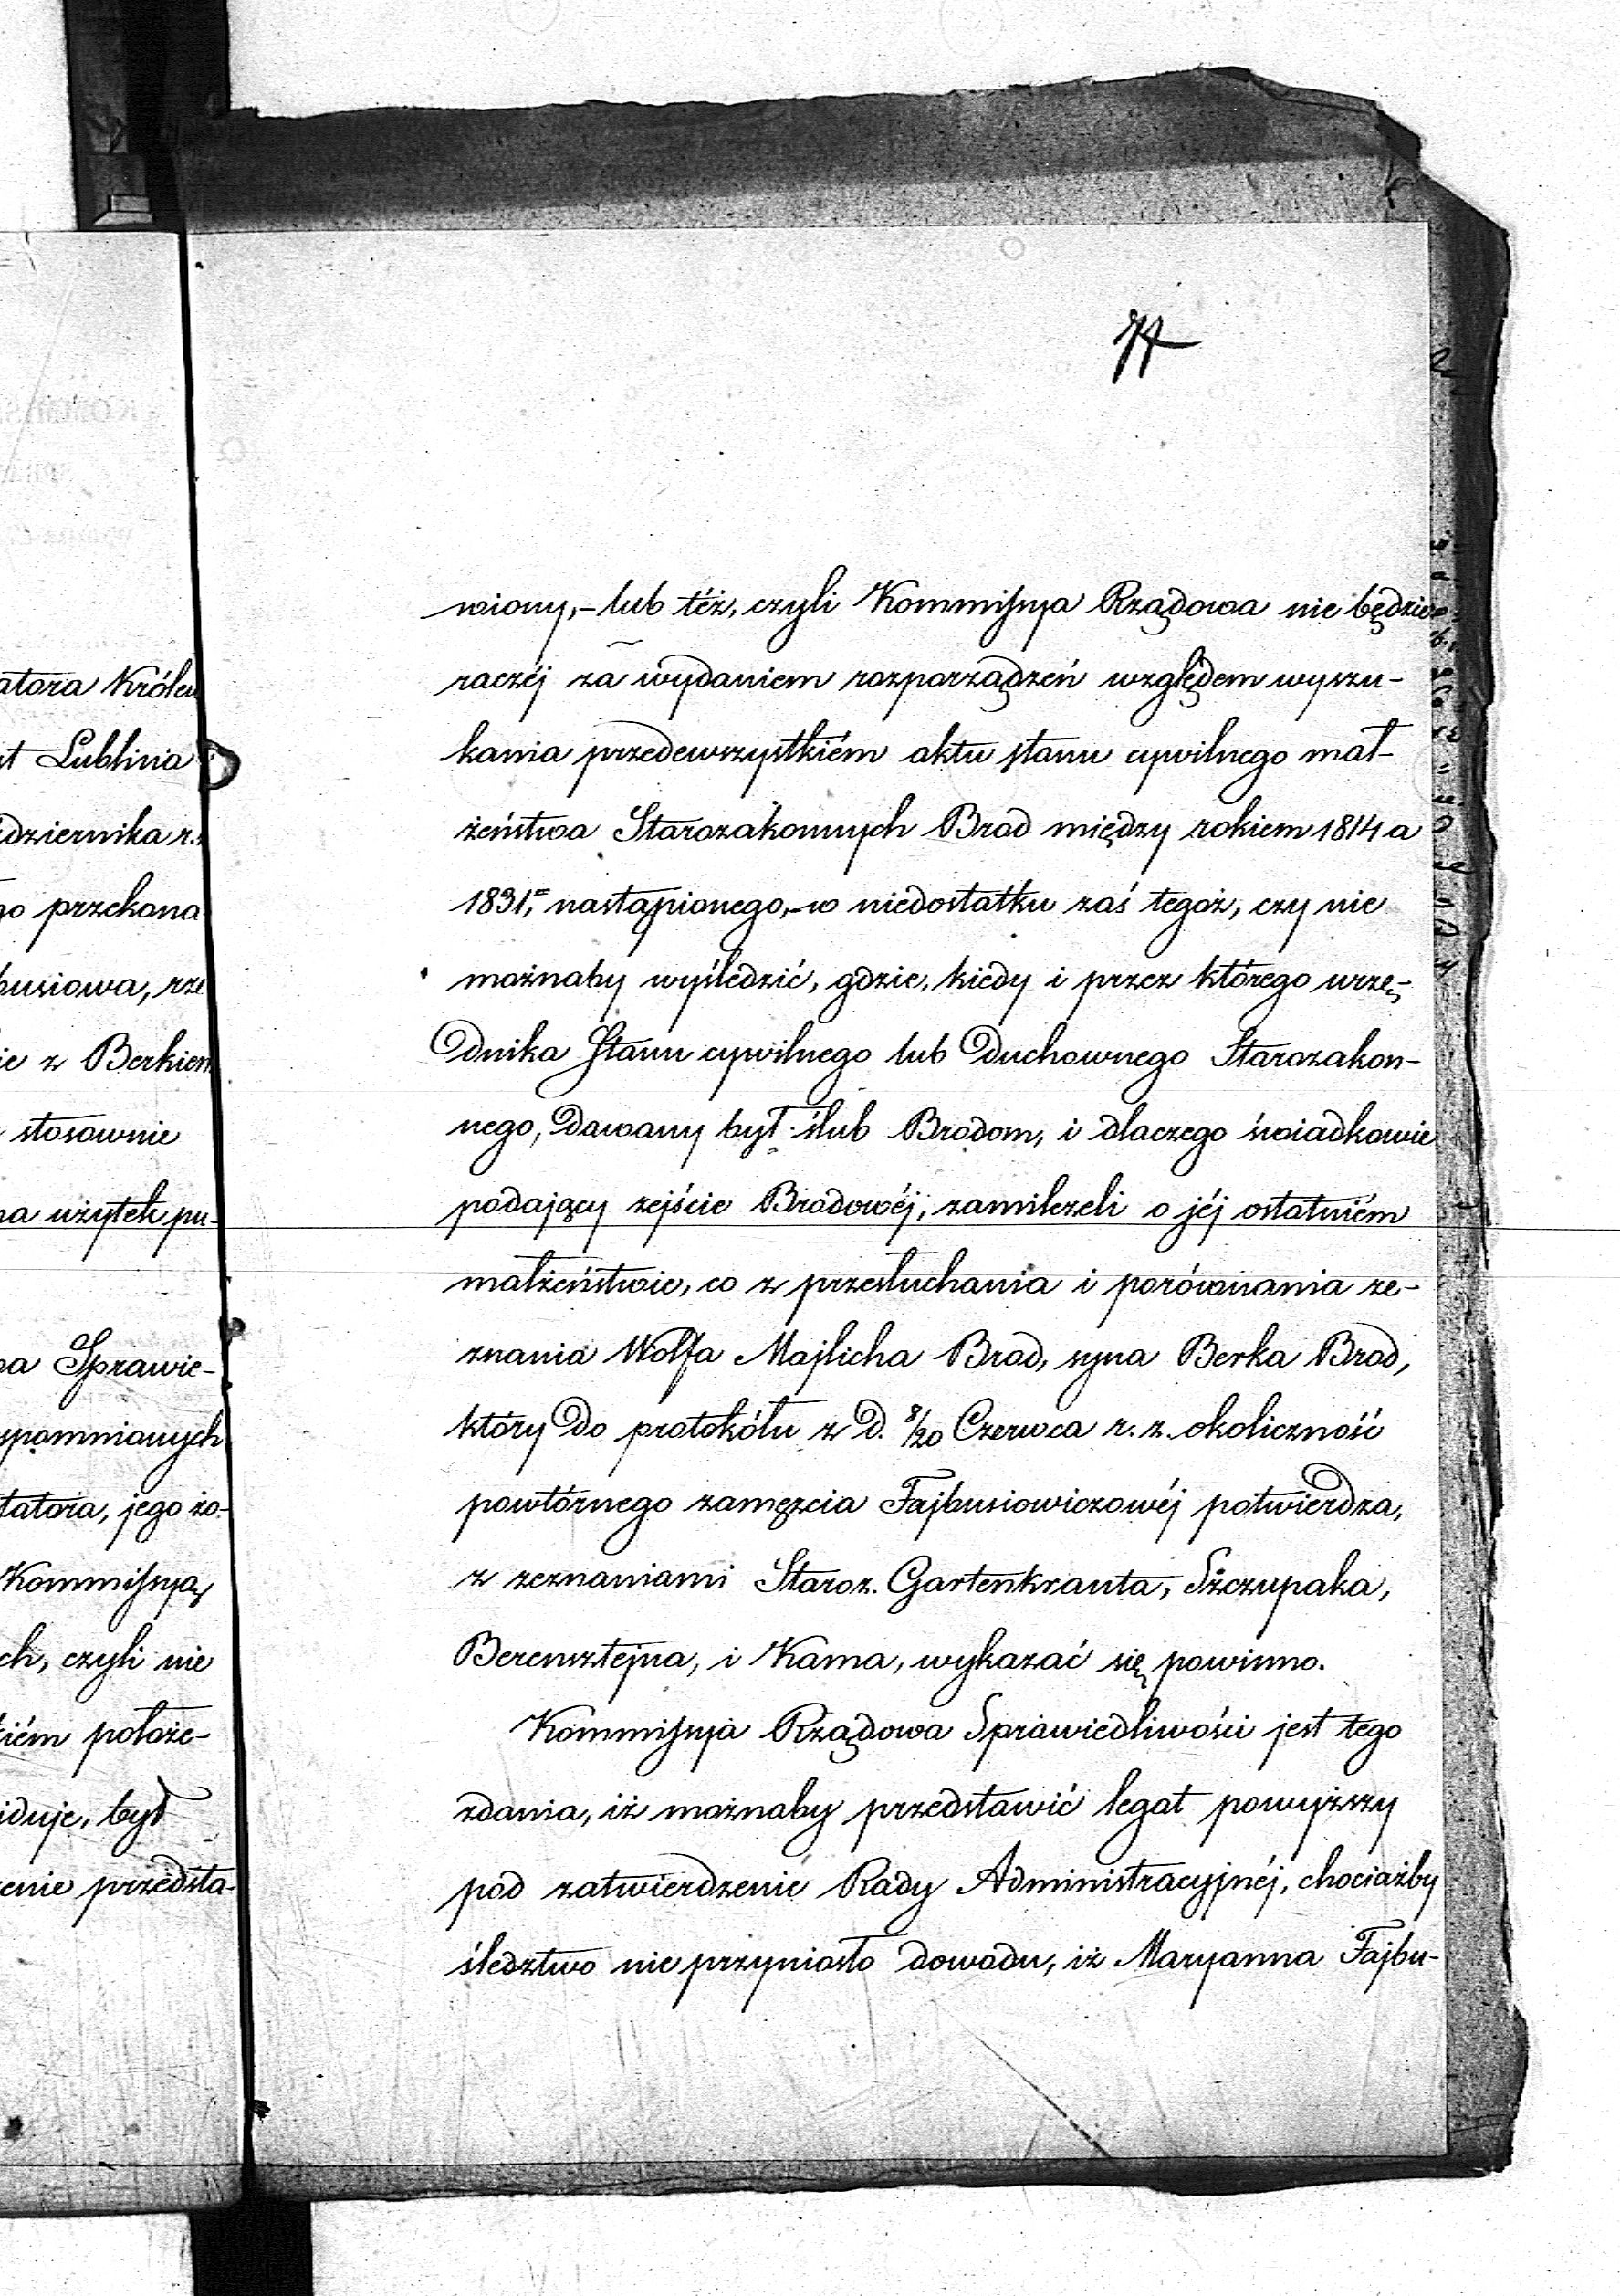 77
wiony,- lub też, czyli Kommissya Rządowa nie będzie
raczéj za wydaniem rozporządzeń względem wyszu-
kania przedewszystkiém aktu stanu cywilnego mał-
żeństwa Starozakonnych Brod między rokiem 1814 a
1831, nastąpionego,- w niedostatku zaś tegoż, czy nie
możnaby wyśledzić, gdzie, kiedy i przez którego urzę-
dnika Stanu cywilnego lub Duchownego Starozakon-
nego, dawany był ślub Brodom, i dlaczego świadkowie
podający zejście Brodowéj, zamilczeli o jéj ostatniém
małżeństwie, co z przesłuchania i porównania ze-
znania Wolfa Majlicha Brod, syna Berka Brod,
który do protokółu z d. 8/20 Czerwca r. z. okoliczność
powtórnego zamęzcia Fajbusiowiczowéj potwierdza,
z zeznaniami Staroz. Gartenkrauta, Szczupaka,
Berensztejna, i Kama, wykazać się powinno.
Kommissyja Rządowa Sprawiedliwości jest tego
zdania, iż możnaby przedstawić legat powyższy
pod zatwierdzenie Rady Administracyjnéj, chociażby
śledztwo nie przyniosło dowodu, iż Maryanna Fajbu-
atora Królew
Lublina
dziernika r.
go przekona
busiowa, rze
ie z Berkiem
stosownie
na użytek pu-
a Sprawie-
spomnionych
tatora, jego żo-
Kommissyą
ch, czyli nie
kiém położe-
iduje, był
enie przedsta-